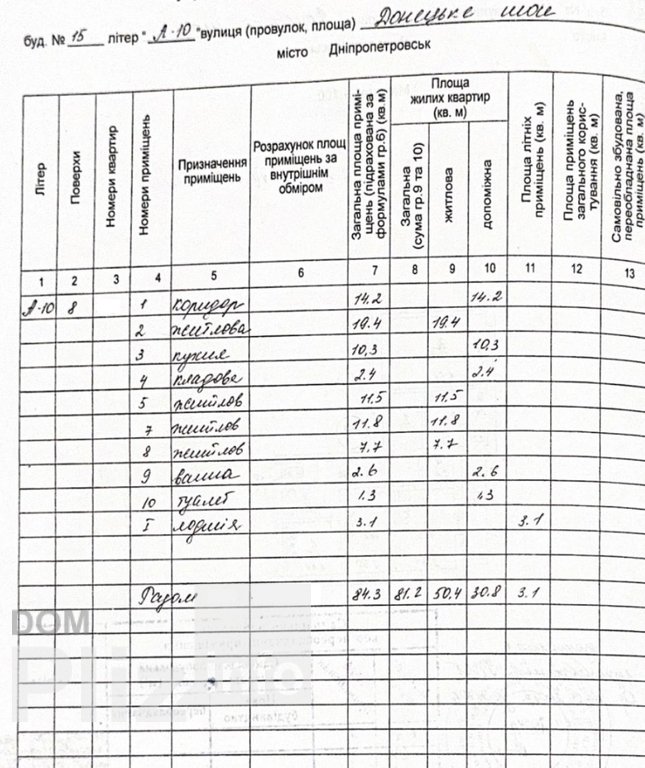 буд. № 15 літер "А-10" вулиця (провулок, площа) Донецьке шосе
місто Дніпропетровськ
Літер | Поверхи | Номери квартир | Номери приміщень | Призначення приміщень | Розрахунок площ приміщень за внутрішнім обміром | Загальна площа примі-щень (підрахована за формулами гр.6) (кв.м) | Площа жилих квартир (кв. м) | Загальна (сума гр.9 та 10) | житлова | допоміжна | Площа літніх приміщень (кв. м) | Площа приміщень загального корис-тування (кв. м) | Самовільно збудована, переобладнана площа приміщень (кв. м)
1 2 3 4 5 6 7 8 9 10 11 12 13
А-10 8 1 коридор 14.2 14.2
2 житлова 19.4 19.4
3 кухня 10,3 10,3
4 кладова 2.4 2.4
5 житлов 11.5 11.5
7 житлов 11.8 11.8
8 житлов 7.7 7.7
9 ванна 2.6 2.6
10 туалет 1.3 1.3
I лоджія 3.1 3.1
Разом 84.3 81.2 50.4 30.8 3.1
DOM